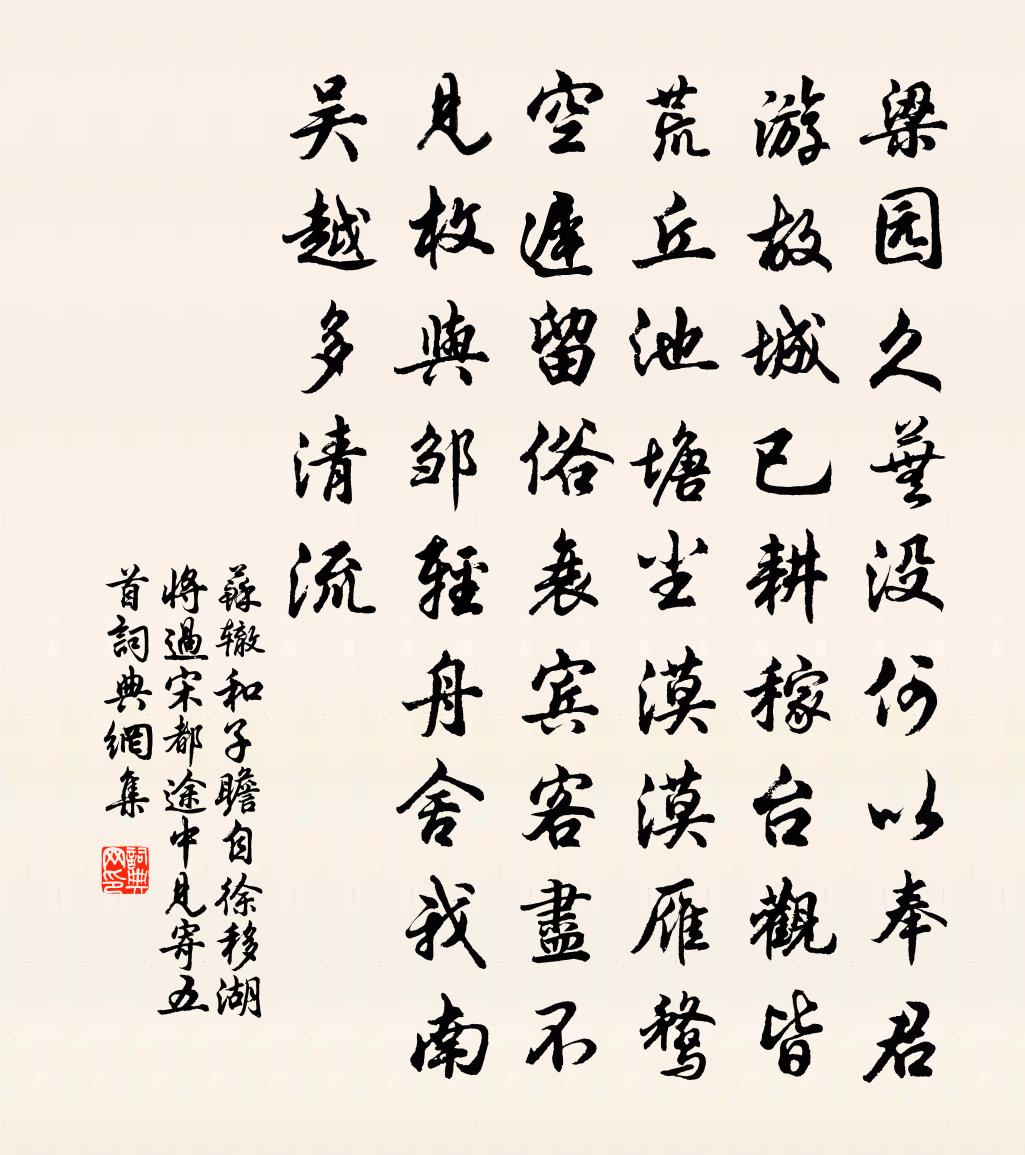 梁园久蕪没何以奉君
游故城已耕稼台觀皆
荒丘池塘尘漠漠雁鹜
空遲留俗衰宾客盡不
見枚與邹輕舟舍我南
吴越多清流
蘇辙和子瞻自徐移湖
将過宋都途中見寄五
首詞典網集
詞典网印